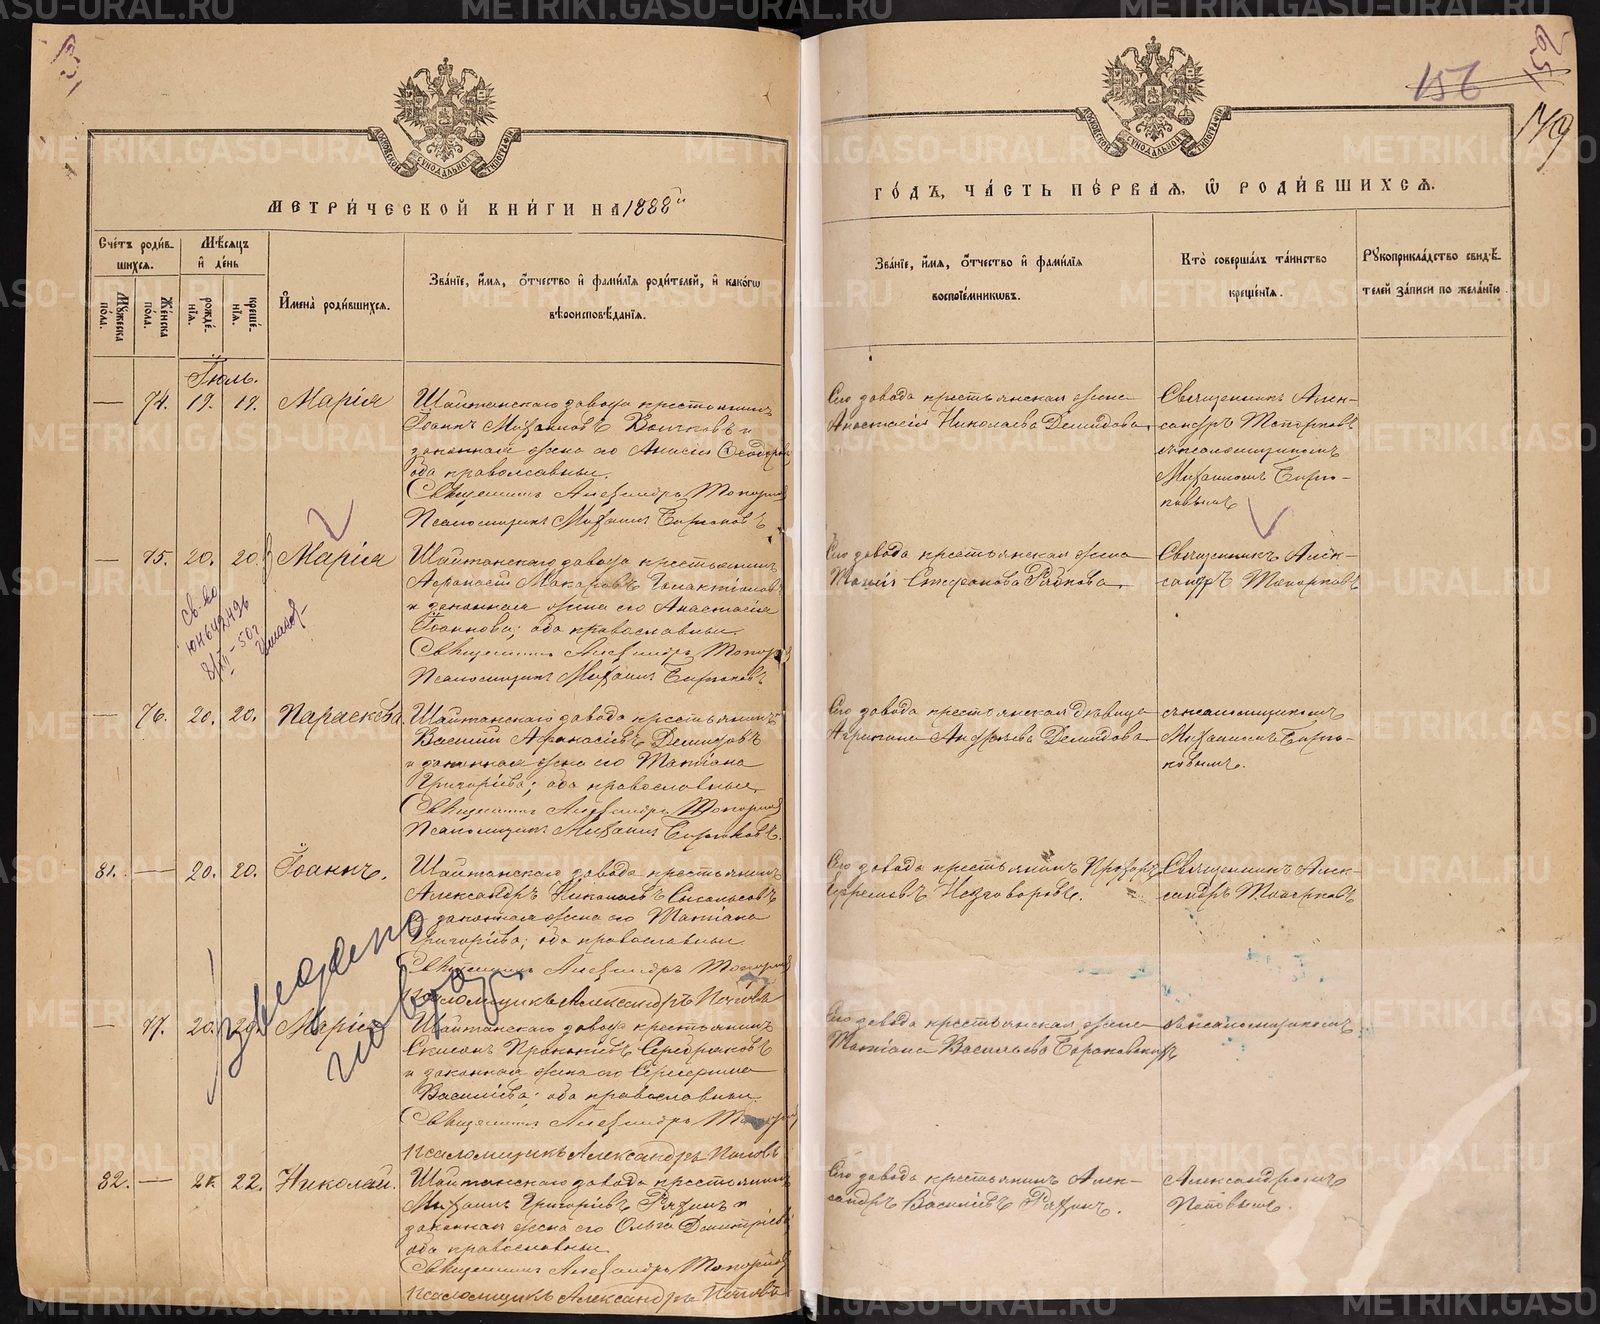 METRIKI.GASO-URAL.RU
156
179
МЕТРИЧЕСКОЙ КНИГИ НА 1888й
ГОДЪ, ЧАСТЬ ПЕРВАЯ, Ѡ РОДИВШИХСЯ.
Счетъ родившихся.
Мужеска пола.
Женска пола.
Мѣсяцъ и день
рожденія.
крещенія.
Имена родившихся.
Званіе, имя, отчество и фамилія родителей, и какогѡ вѣроисповѣданія.
Званіе, имя, отчество и фамилія воспріемникѡвъ.
Кто совершалъ таинство крещенія.
Рукоприкладство свидѣтелей записи по желанію.
Іюль.
— 74. 19. 19. Марія
Шайтанскаго завода крестьянинъ
Іоаннъ Михаиловъ Волковъ и
законная жена его Анисія Ѳеодоро
ва православные.
Священникъ Александръ Топорков
Псаломщикъ Михаилъ Бирюковъ
Его завода крестьянская жена
Анастасія Николаева Демидова.
Священникъ Алек-
сандръ Топорковъ
съ псаломщикомъ
Михаиломъ Бирю-
ковымъ
— 75. 20. 20. Марія
Шайтанскаго завода крестьянинъ
Аѳанасій Макаровъ Галактіоновъ
и законная жена его Анастасія
Іоаннова; оба православные.
Священникъ Александръ Топорк
Псаломщикъ Михаилъ Бирюковъ.
Его завода крестьянская жена
Стефанова
Священникъ Алек-
сандръ Топорковъ
св-во
8/XII-50г
— 76. 20. 20. Параскева
Шайтанскаго завода крестьянинъ
Василій Аѳанасіевъ Демидовъ
и законная жена его Татіана
Григоріева; оба православные.
Священникъ Александръ Топорков
Псаломщикъ Михаилъ Бирюковъ.
Его завода крестьянская дѣвица
Агрипина Андреева Демидова
съ псаломщикомъ
Михаиломъ Бирю-
ковымъ.
81. — 20. 20. Іоаннъ.
Шайтанскаго завода крестьянинъ
Александръ Николаевъ
и законная жена его Татіана
Григоріева; оба православные
Священникъ Александръ Топорков
Псаломщикъ Александръ Поповъ
Его завода крестьянинъ Прохоръ
Ефремовъ Незговоровъ.
Священникъ Алек-
сандръ Топорковъ
— 77. 20. 20. Марія
Шайтанскаго завода крестьянинъ
Прокопіевъ Серебряковъ
и законная жена его Серафима
Василіева; оба православные.
Священникъ Александръ Топорк
Псаломщикъ Александръ Поповъ
Его завода крестьянская жена
Татіана Васильева
съ псаломщикомъ
82. — 21. 22. Николай.
Шайтанскаго завода крестьянинъ
Михаилъ Григоріевъ
законная жена его Ольга Димитріева
оба православные
Священникъ Александръ Топорков
Псаломщикъ Александръ Поповъ
Его завода крестьянинъ Алек-
сандръ Василіевъ
Александромъ
Поповымъ.